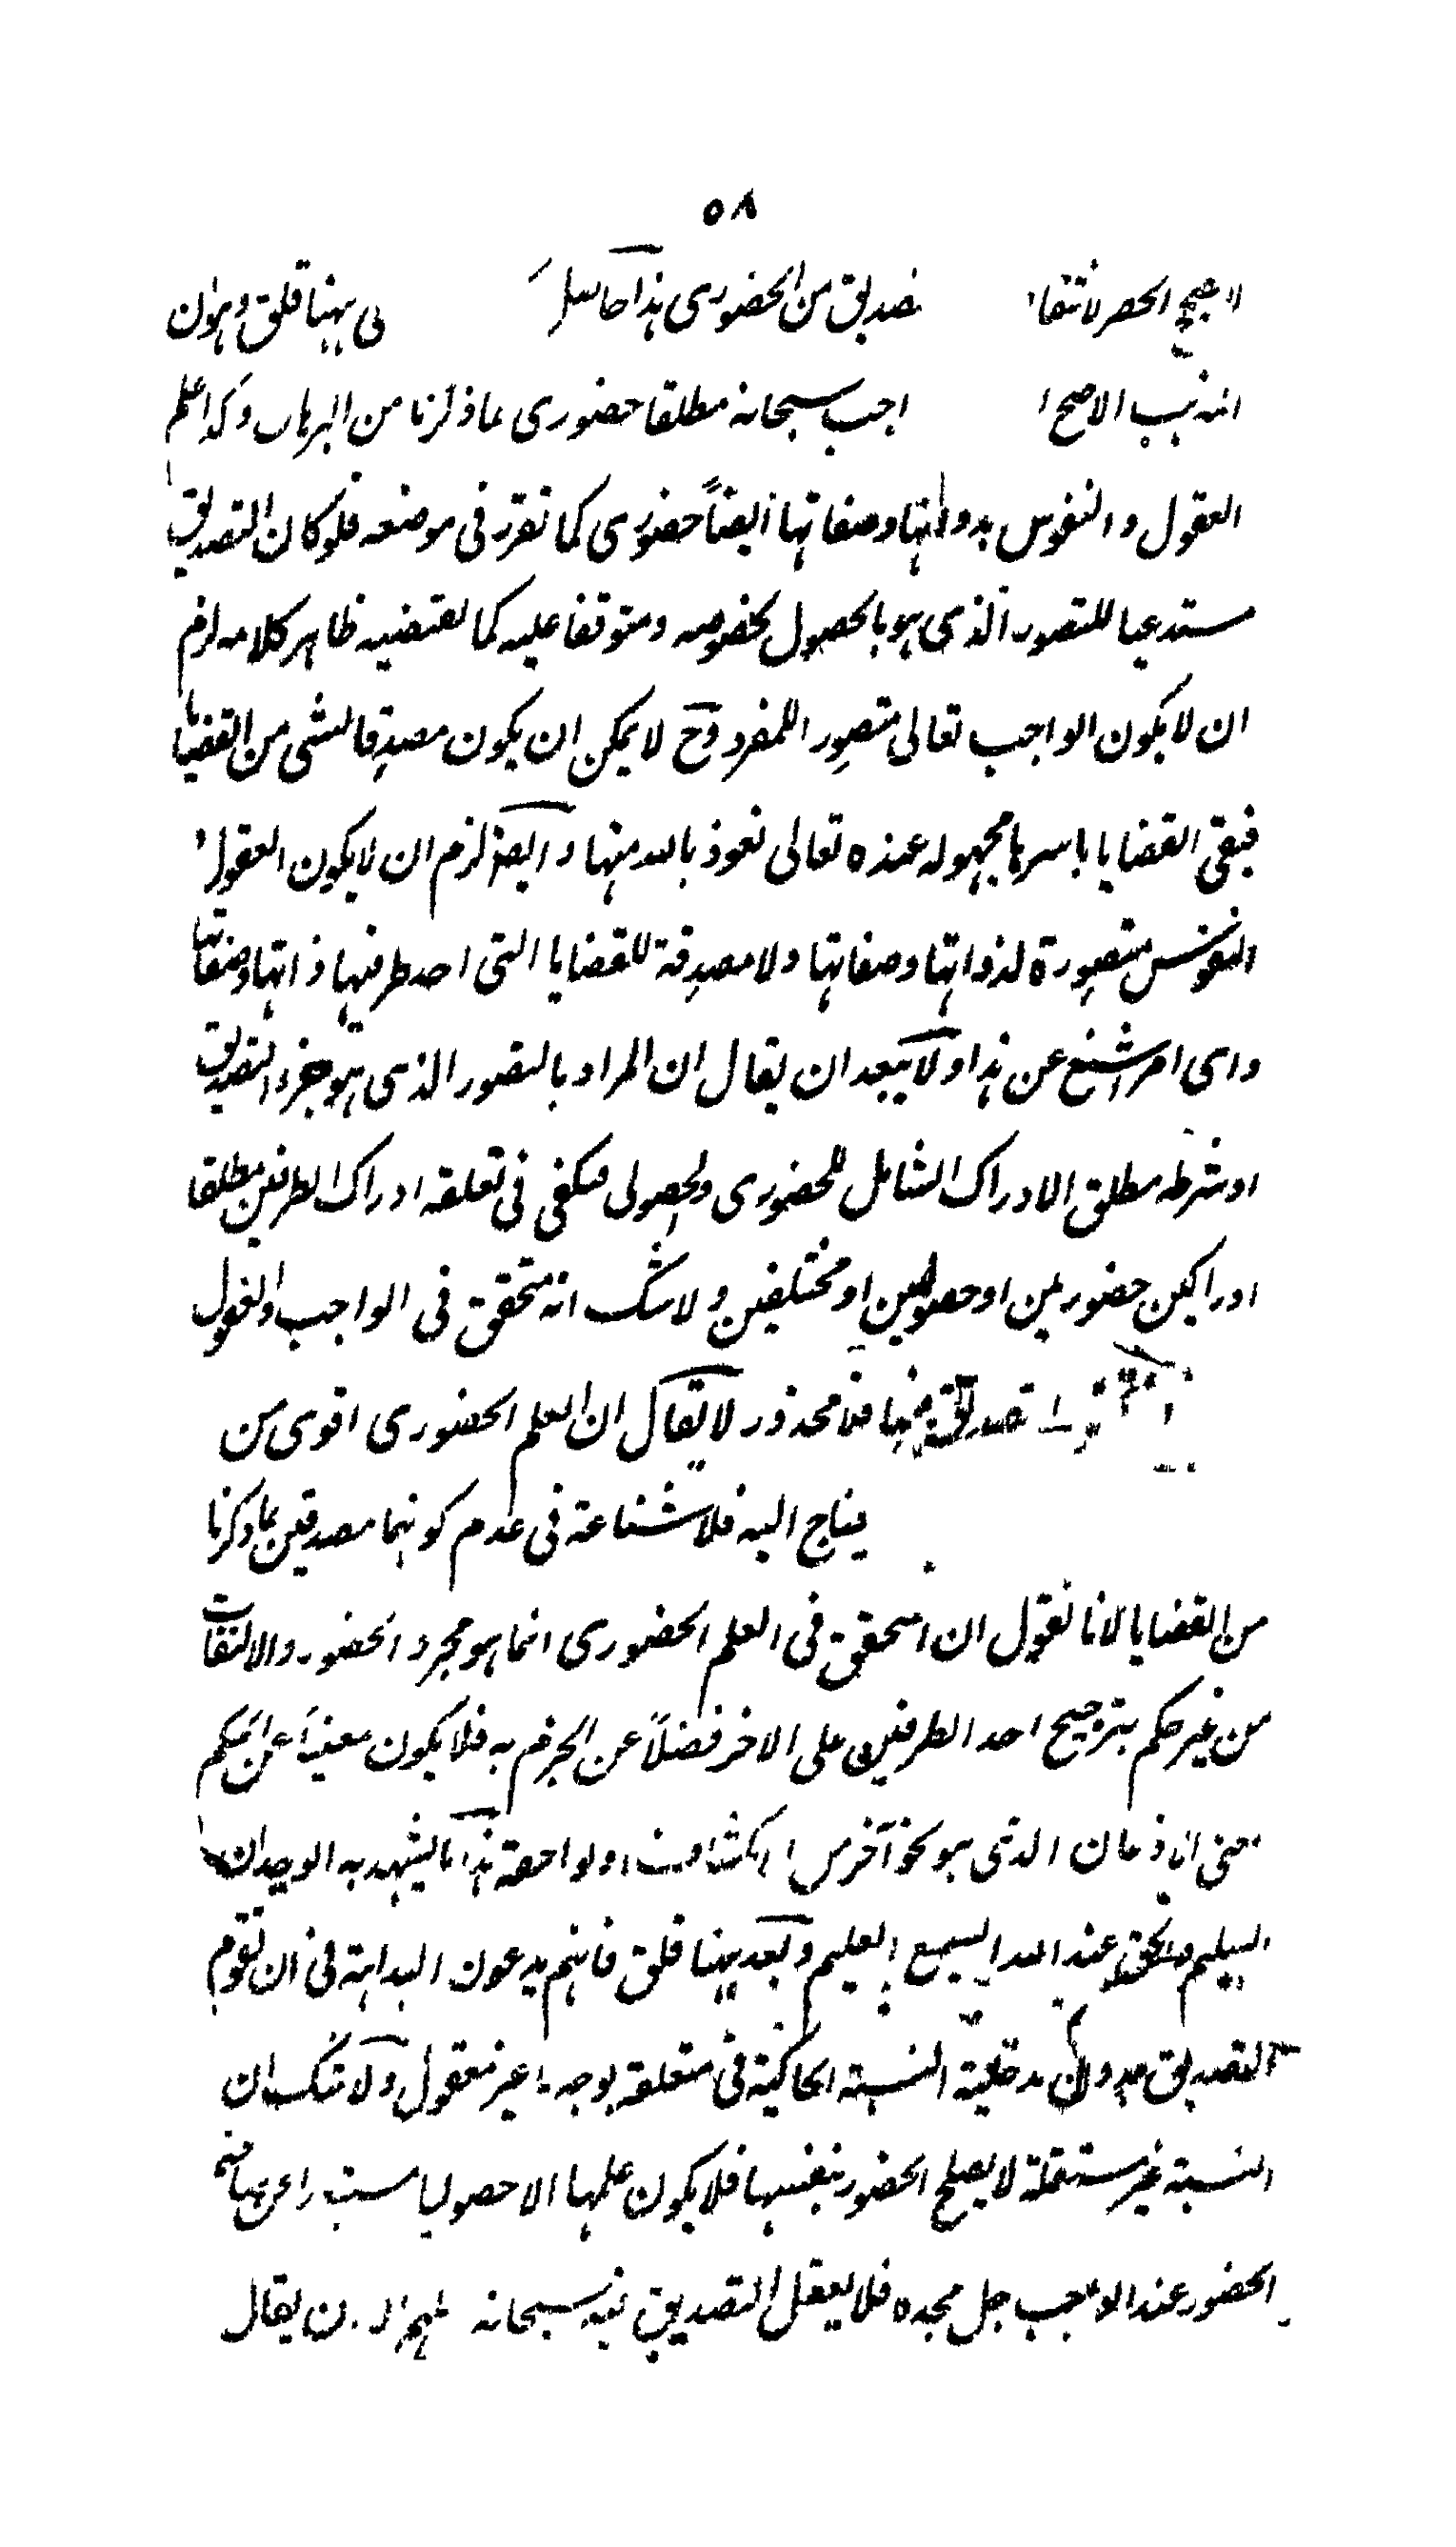 ٥٨
الحصر تصديق من الحضورى هذا حاصل لى ههنا قلق وهو ان
الاصح سبحانه مطلقا حضورى لما ذكرنا من البرهان وكذا علم
العقول والنفوس بذواتها وصفاتها ايضاً حضورى كما تقرر فى موضعه فلو كان التصديق
مستدعيا للتصور الذى هو بالحصول بخصوصه ومتوقفا عليه كما يقتضيه ظاهر كلامه لزم
ان لا يكون الواجب تعالى متصور اللمفرد وح لا يمكن ان يكون مصدقا لشى من القضايا
فبقى القضايا باسرها مجهولة عنده تعالى نعوذ بالله منها وايضا لزم ان لا يكون العقول
النفوس متصورة لذواتها وصفاتها ولا مصدقة للقضايا التى احد طرفيها ذاتها وصفاتها
واى امر اشنع عن هذا ولا يبعد ان يقال ان المراد بالتصور الذى هو جزء التصديق
او شرطه مطلق الادراك الشامل للحضورى والحصولى فيكفى فى تعلقه ادراك الطرفين مطلقا
ادراكين حضوريين او حصوليين او مختلفين ولا شك انه متحقق فى الواجب والعقول
تصديق منها فلا محذور لا يقال ان العلم الحضورى اقوى من
يحتاج اليه فلا شناعة فى عدم كونهما مصدقين بما ذكرنا
من القضايا لانا نقول ان المتحقق فى العلم الحضورى انما هو مجرد الحضور والالتفات
من غير حكم بترجيح احد الطرفين على الاخر فضلاً عن الجزم به فلا يكون مغنياً عن الحكم
بمعنى الاذعان الذى هو نحو آخر من الانكشاف او لواحقه هذا ما يشهد به الوجدان
السليم والحق عند الله السميع العليم وبعد ههنا قلق فانهم يدعون البداهة فى ان تقوم
التصديق بدون مدخلية النسبة الحاكية فى متعلقه بوجه ما غير معقول ولا شك ان
النسبة غير مستقلة لا يصلح الحضور بنفسها فلا يكون علمها الا حصوليا
الحضور عند الواجب جل مجده فلا يعقل التصديق فيه سبحانه اللهم الا ان يقال